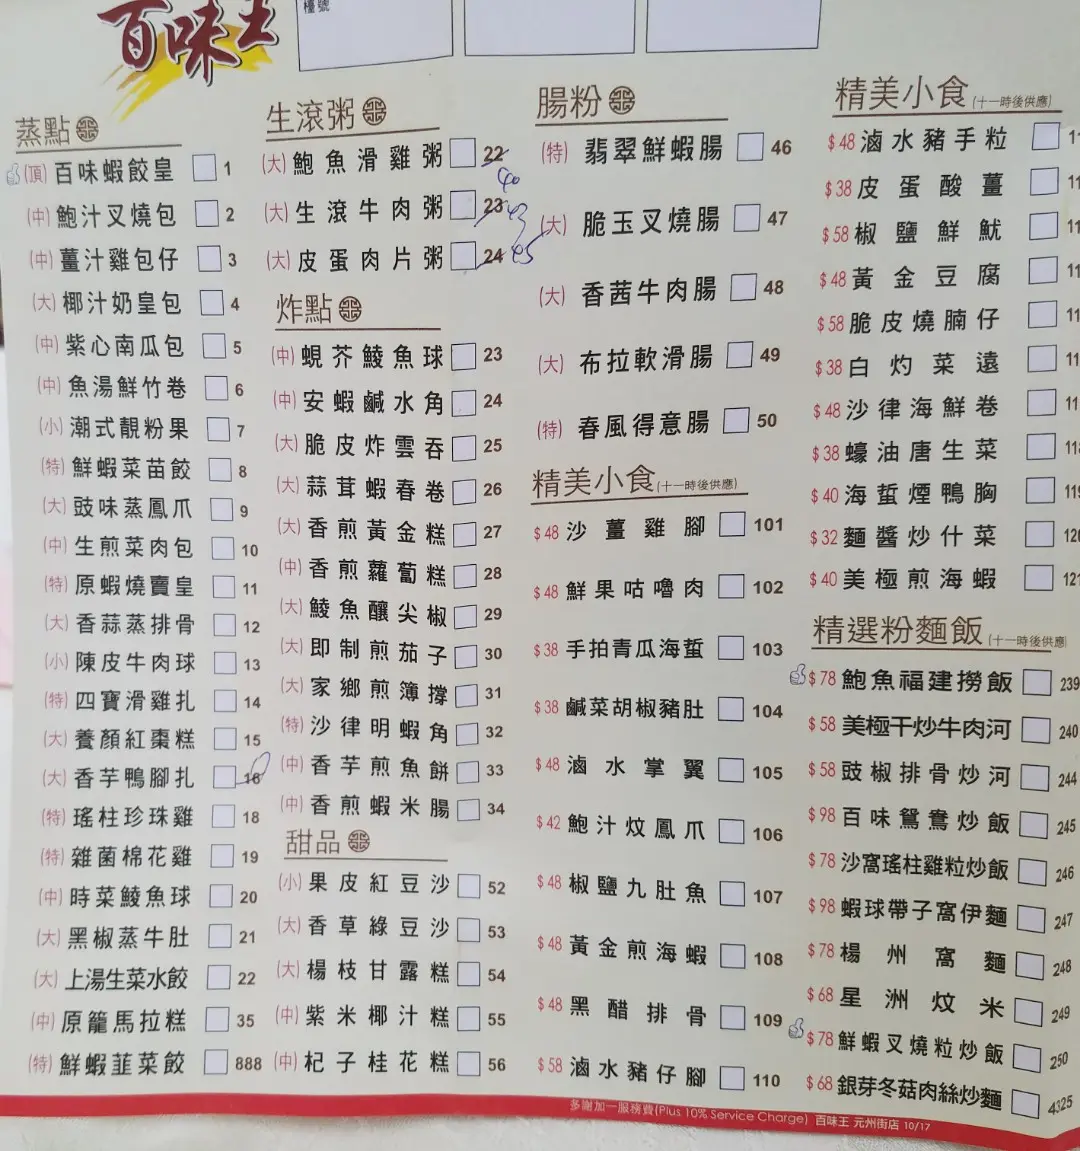 百味王
檯號
蒸點
(頂) 百味蝦餃皇 1
(中) 鮑汁叉燒包 2
(中) 薑汁雞包仔 3
(大) 椰汁奶皇包 4
(中) 紫心南瓜包 5
(中) 魚湯鮮竹卷 6
(小) 潮式靚粉果 7
(特) 鮮蝦菜苗餃 8
(大) 豉味蒸鳳爪 9
(中) 生煎菜肉包 10
(特) 原蝦燒賣皇 11
(大) 香蒜蒸排骨 12
(小) 陳皮牛肉球 13
(特) 四寶滑雞扎 14
(大) 養顏紅棗糕 15
(大) 香芋鴨腳扎 16
(特) 瑤柱珍珠雞 18
(特) 雜菌棉花雞 19
(中) 時菜鯪魚球 20
(大) 黑椒蒸牛肚 21
(大) 上湯生菜水餃 22
(中) 原籠馬拉糕 35
(特) 鮮蝦韮菜餃 888
生滾粥
(大) 鮑魚滑雞粥 22
40
(大) 生滾牛肉粥 23
43
(大) 皮蛋肉片粥 24
45
炸點
(中) 蜆芥鯪魚球 23
(中) 安蝦鹹水角 24
(大) 脆皮炸雲吞 25
(大) 蒜茸蝦春卷 26
(大) 香煎黃金糕 27
(中) 香煎蘿蔔糕 28
(大) 鯪魚釀尖椒 29
(大) 即制煎茄子 30
(大) 家鄉煎簿撐 31
(特) 沙律明蝦角 32
(中) 香芋煎魚餅 33
(中) 香煎蝦米腸 34
甜品
(小) 果皮紅豆沙 52
(大) 香草綠豆沙 53
(大) 楊枝甘露糕 54
(中) 紫米椰汁糕 55
(中) 杞子桂花糕 56
腸粉
(特) 翡翠鮮蝦腸 46
(大) 脆玉叉燒腸 47
(大) 香茜牛肉腸 48
(大) 布拉軟滑腸 49
(特) 春風得意腸 50
精美小食(十一時後供應)
$48 沙薑雞腳 101
$48 鮮果咕嚕肉 102
$38 手拍青瓜海蜇 103
$38 鹹菜胡椒豬肚 104
$48 滷水掌翼 105
$42 鮑汁炆鳳爪 106
$48 椒鹽九肚魚 107
$48 黃金煎海蝦 108
$48 黑醋排骨 109
$58 滷水豬仔腳 110
精美小食(十一時後供應)
$48 滷水豬手粒 1
$38 皮蛋酸薑 11
$58 椒鹽鮮魷 11
$48 黃金豆腐 11
$58 脆皮燒腩仔 11
$38 白灼菜遠 11
$48 沙律海鮮卷 11
$38 蠔油唐生菜 118
$40 海蜇煙鴨胸 119
$32 麵醬炒什菜 120
$40 美極煎海蝦 121
精選粉麵飯(十一時後供應)
$78 鮑魚福建撈飯 239
$58 美極干炒牛肉河 240
$58 豉椒排骨炒河 244
$98 百味鴛鴦炒飯 245
$78 沙窩瑤柱雞粒炒飯 246
$98 蝦球帶子窩伊麵 247
$78 楊州窩麵 248
$68 星洲炆米 249
$78 鮮蝦叉燒粒炒飯 250
$68 銀芽冬菇肉絲炒麵 4325
多謝加一服務費(Plus 10% Service Charge) 百味王 元州街店 10/17